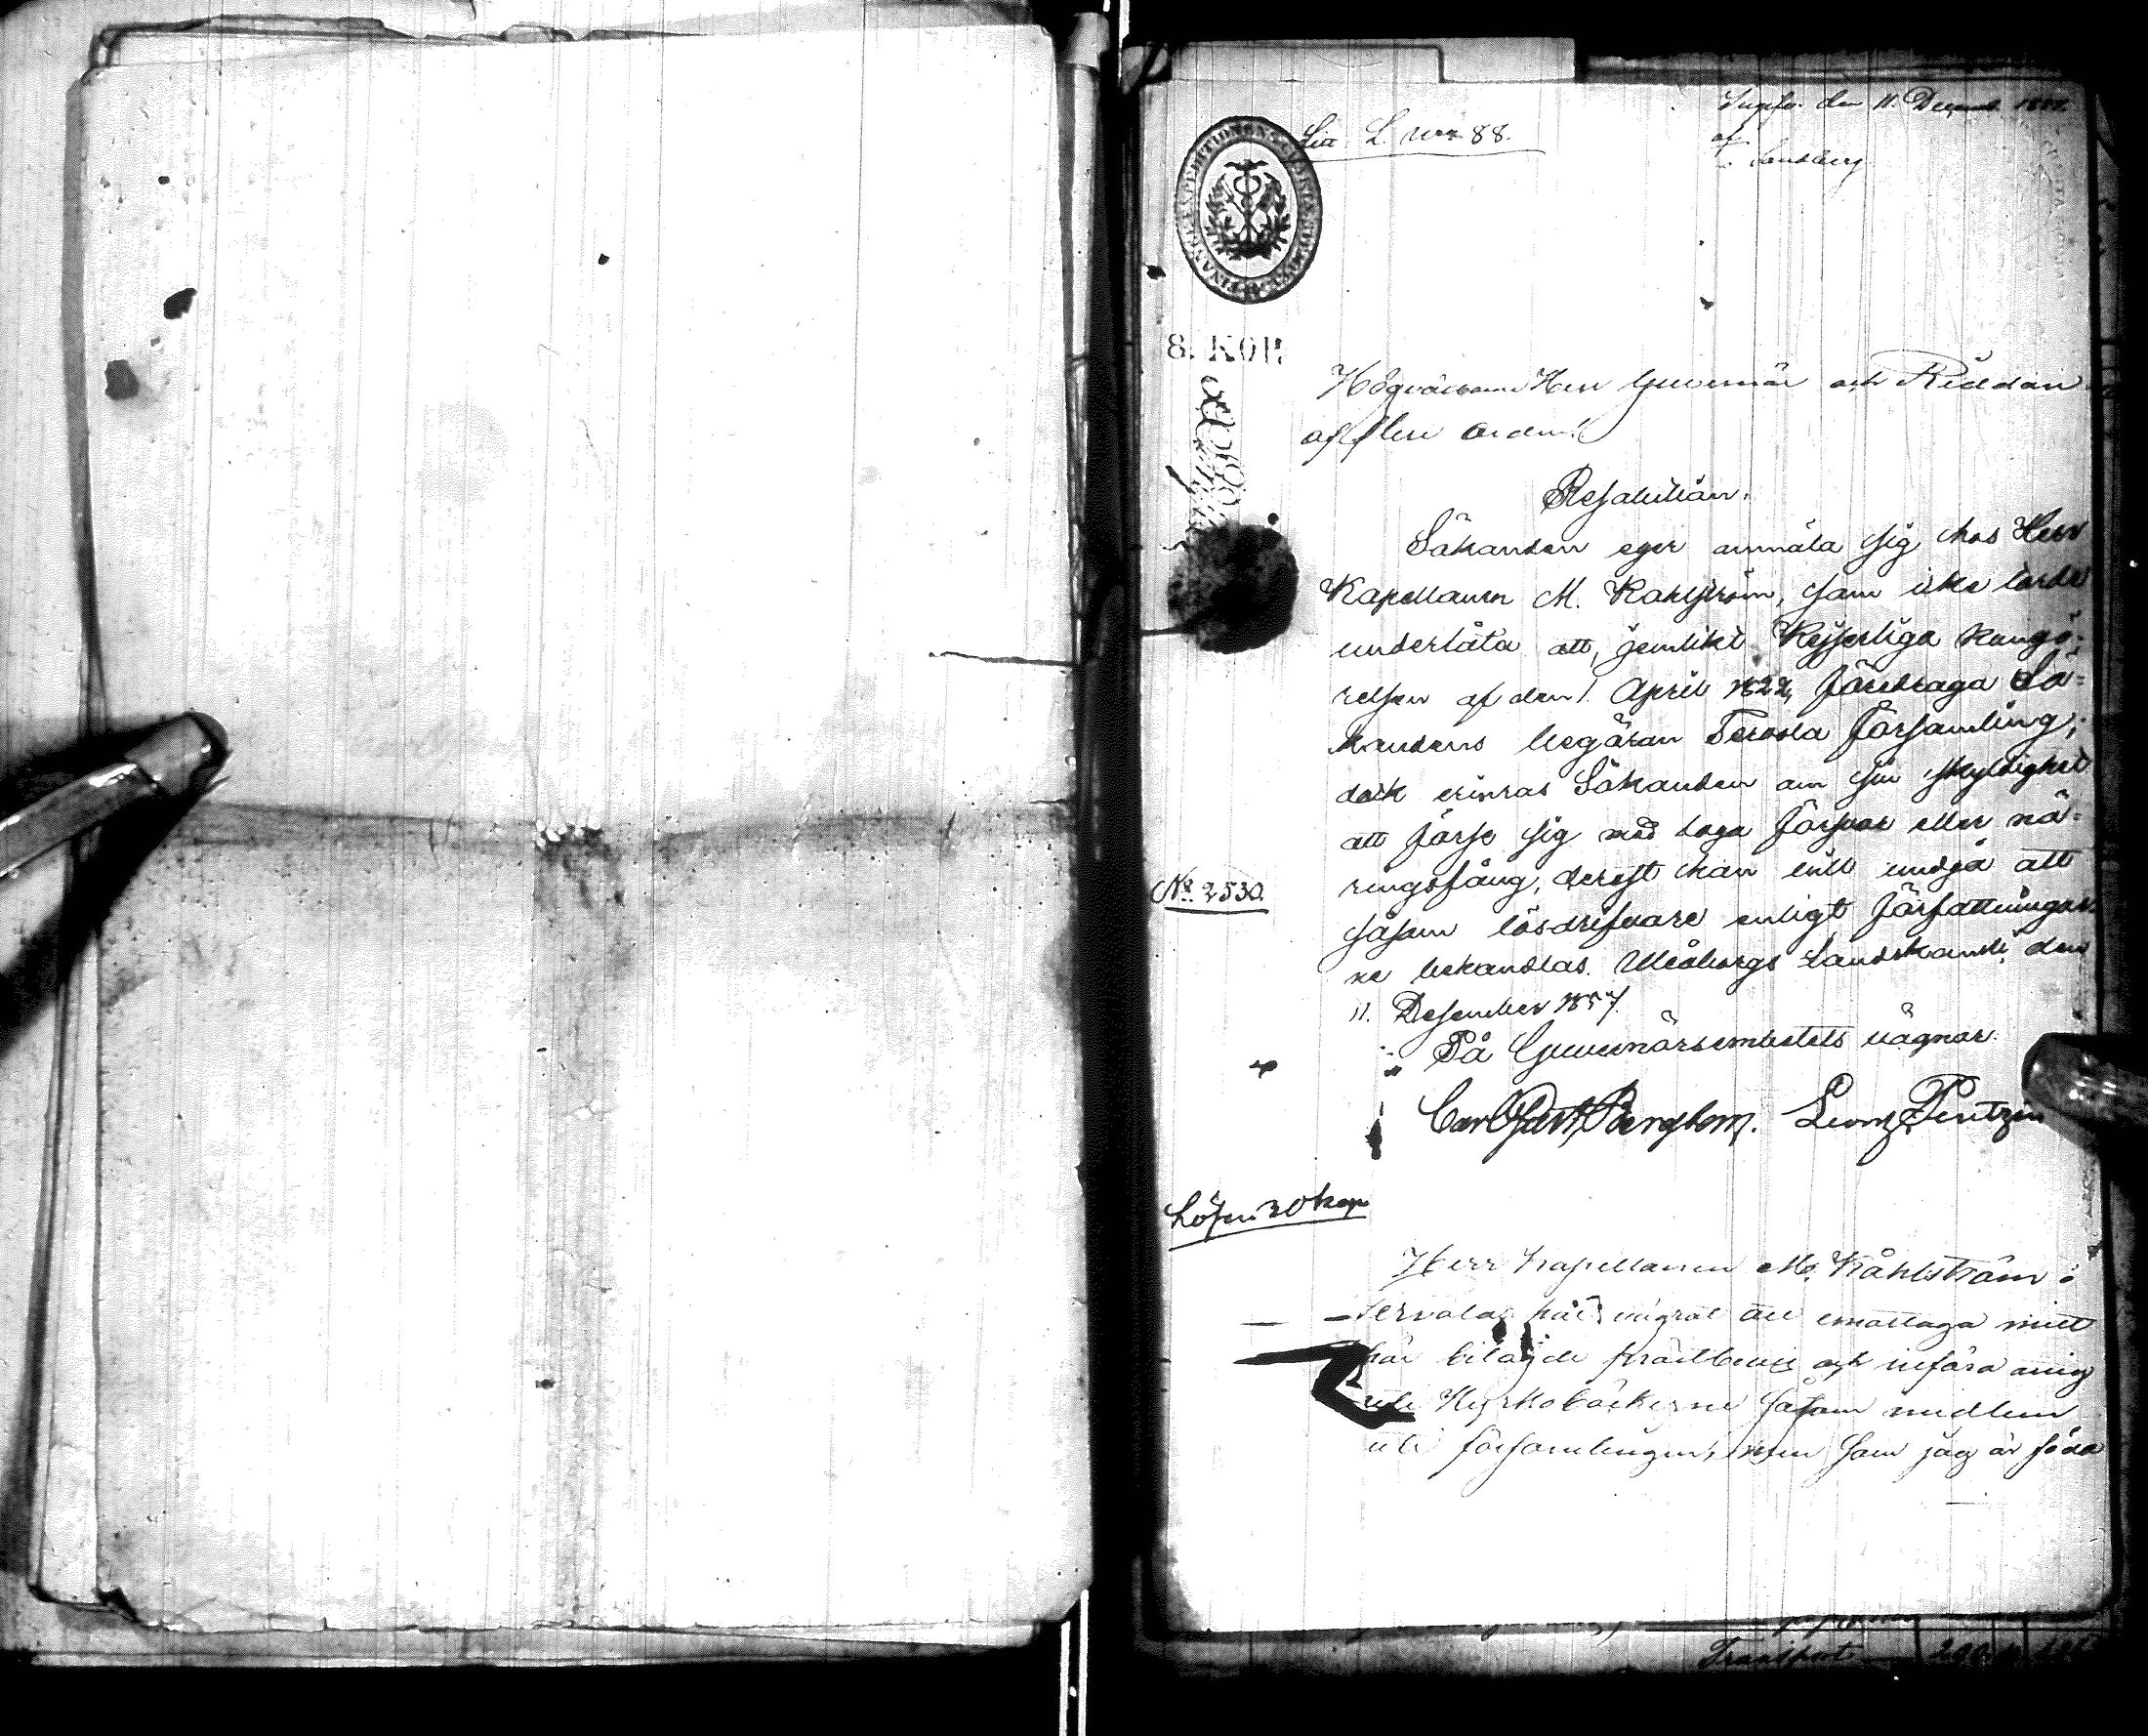 Ingifv. den 11. Decemb. 1857.
af
Sandberg
Litt. L. N:o 88.
8. KOP.
Högvälborne Herr Guvernör och Riddare
af flere Orden!
Resolution.
Sökanden eger anmäla sig hos Herr
Kapellanen M. Kahlström, som icke lärde
underlåta att, jemlikt Kejserliga Kungö-
relsen af den 1. April 1822, föredraga Sö-
kandens begäran Tervola Församling;
dock erinras Sökanden om sin skyldighet
att förse sig med laga försvar eller nä-
ringsfång, derest han vill undgå att
såsom lösdrifvare enligt Författningar-
ne behandlas. Uleåborgs Landskansli, den
11. December 1857.
På Guvernörsembetets vägnar:
Carl Bergbom. Georg Pentzin
No 2530.
Lösen 20 kop
Herr Kapellanen M. Kåhlström i
Tervola har vägrat att emottaga mitt
här bilagde prästbevis och införa mig
uti Kyrkoböckerne såsom medlem
uti församlingen, men som jag är född
Transport